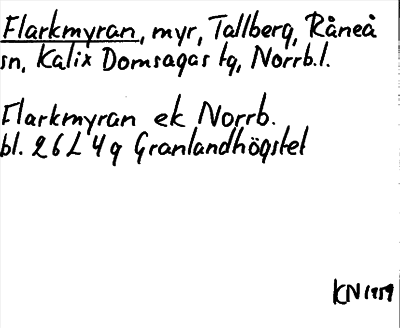 Flarkmyran, myr, Tallberg, Råneå
sn, Kalix Domsagas tg, Norrb.l.
Flarkmyran ek Norrb.
bl. 26 L 4 g Granlandhögstet
KN 1959